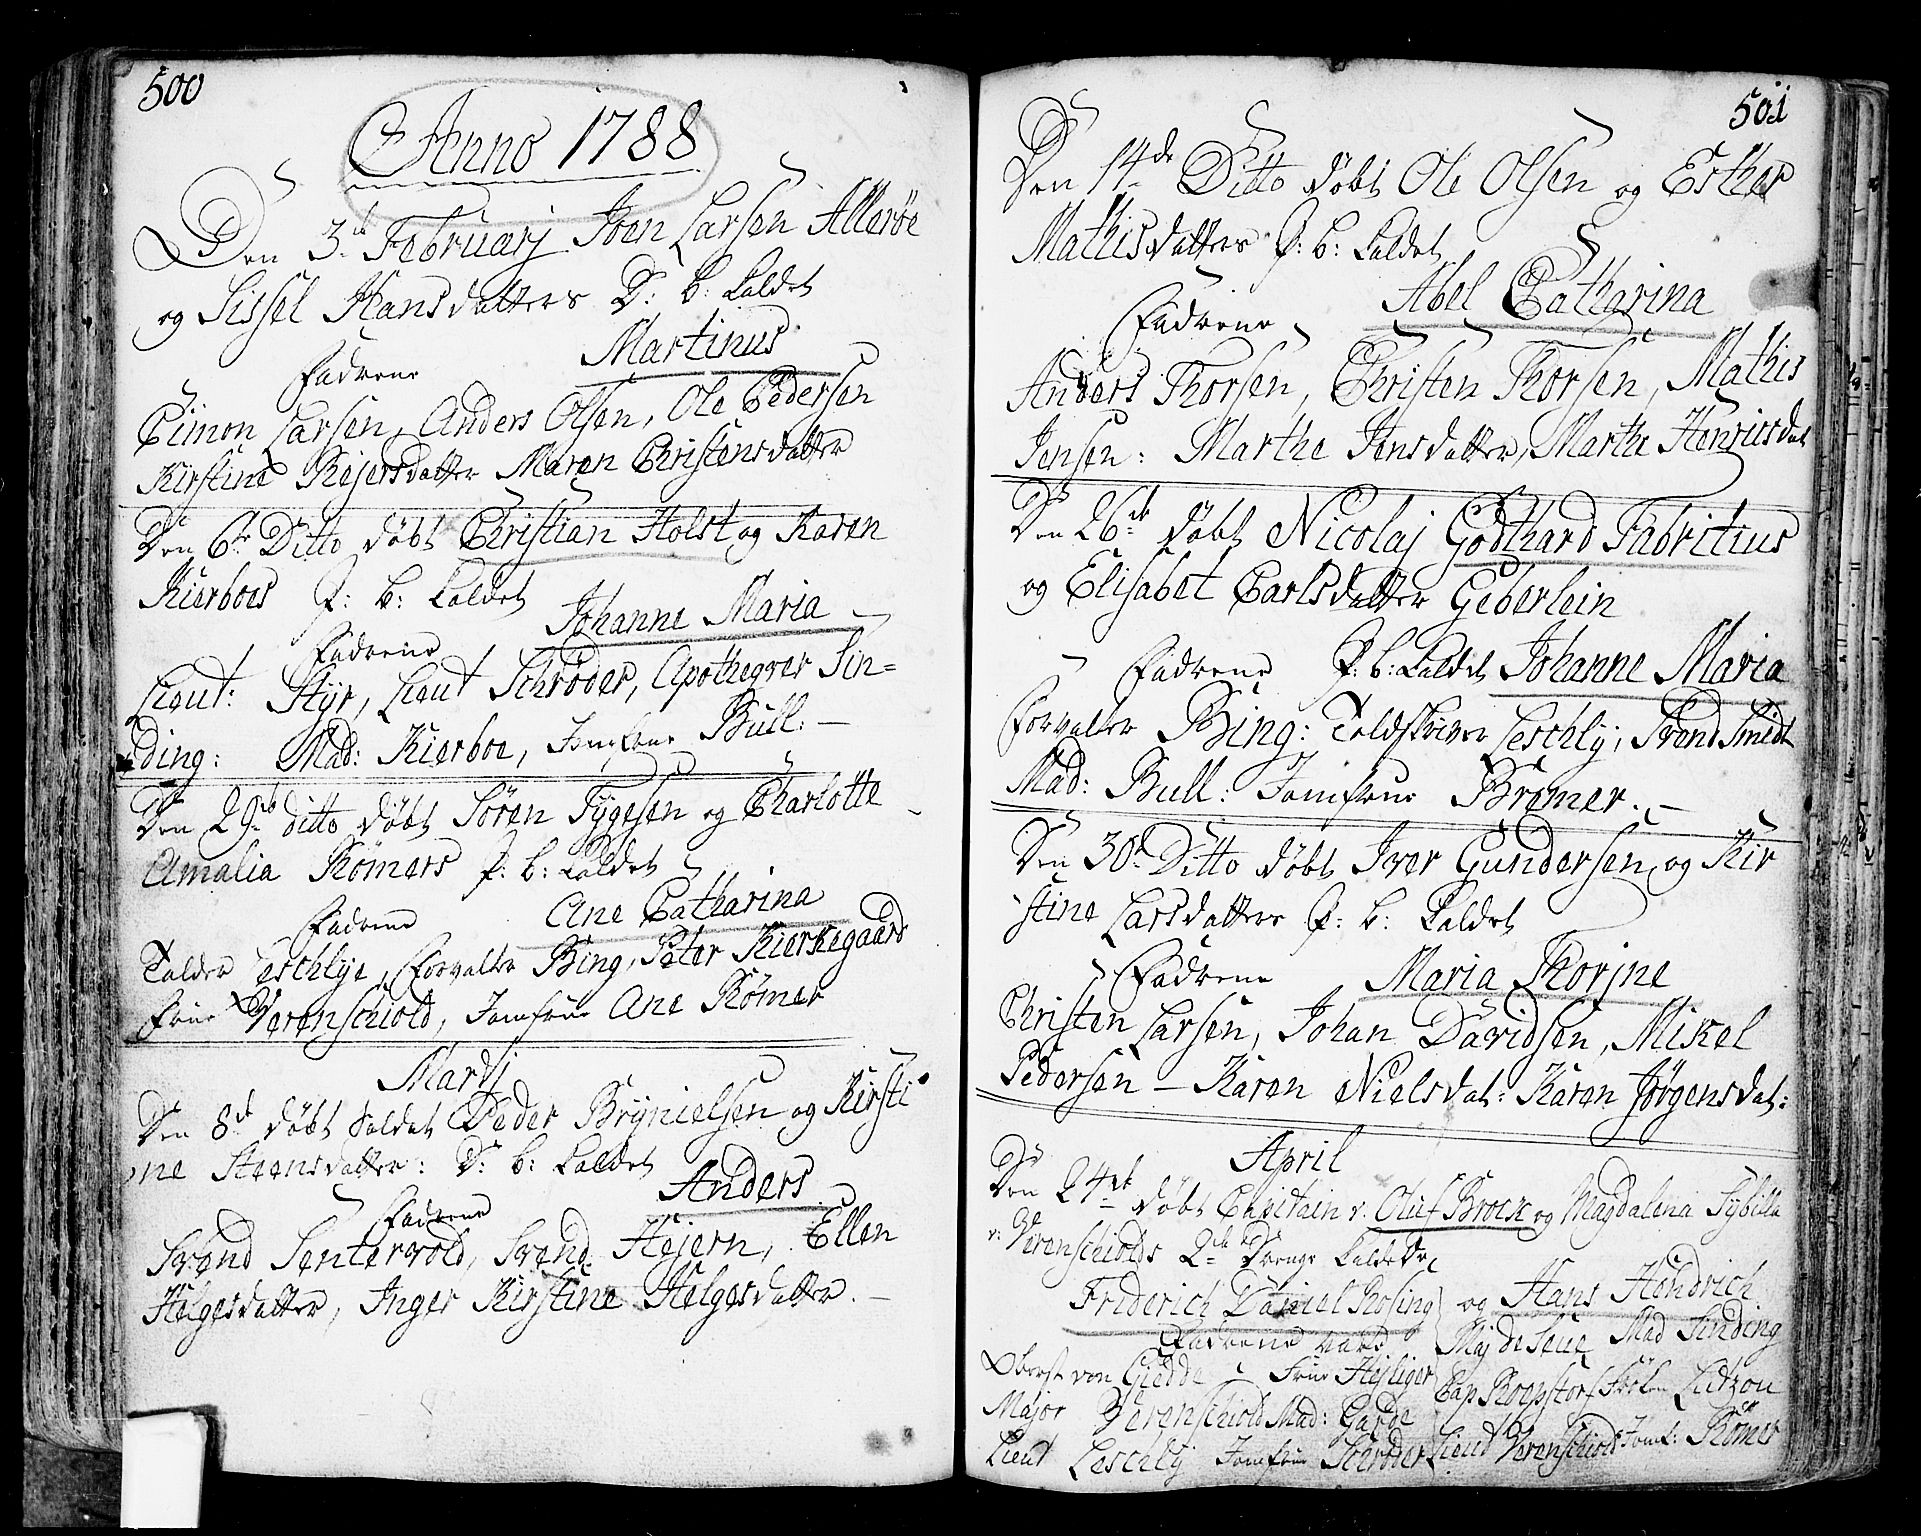 500
Anno 1788
Den 3de Februarj Joen Larsen Allerøe
og Sissel Hansdatters D: b: kaldet
Martinus
Fadrene
Simon Larsen, Anders Olsen, Ole Pedersen
Kirstine Rejersdatter Maren Christensdatter
Den 6te Ditto døbt Christian Holst og Karen
Kierboes P: b: kaldet
Johanne Maria
Fadrene
Lieut: Styr, Lieut Schrøder, Apotheqver Sin=
ding: Mad: Kierboe, Jomfrue Bull: —
Den 29de ditto døbt Søren Tygesen og Charlotte
Amalia Rømers P: b: kaldet
Ane Catharina
Fadrene
Tolder Leschlye, Forvalter Bing, Peter Kierkegaard
Frue Werenschiold, Jomfrue Ane Rømer
Martj
Den 8de døbt Soldat Peder Brynielsen og Kirsti
ne Steensdatter: D: b: kaldet
Anders
Fadrene
Svend Sentervold, Svend Hejern, Ellen
Helgesdatter, Inger Kirstine Helgesdatter. —
501
Den 14de Ditto døbt Ole Olsen og Esther
Mathisdatters P: b: kaldet
Abel Catharina
Fadrene
Anders Thorsen, Christen Thorsen, Mathis
Jensen: Marthe Jensdatter, Marthe Henricsdat
Den 26de døbt Nicolaj Godthard Fabritius
og Elisabet Carlsdatter Geberlein
Fadrene P: b: kaldet Johanne Maria
Forvalter Bing: Toldskriver Leschly, Svend Smidt
Mad: Bull: Jomfrue Brømer. —
Den 30te Ditto døbt Iver Gundersen og Kir
stine Larsdatters P: b: kaldet
Fadrene Maria Thorine
Christen Larsen, Johan Davidsen, Mikel
Pedersen — Karen Nielsdat: Karen Jørgensdat:
April
Den 24de døbt Capitain v. Oluf Brock og Magdalena Sybilla
v: Werenschiolds 2de Drenge kaldede
Friderich Daniel Rosing og Hans Hendrich
Fadrene vare Maj de Seue Mad Sinding
Oberst von Giedde Frue Hejliger Cap Roepstorf Frøken Lutzou
Major Werenschiold Mad: Garde
Lieut Leschly Jomfrue Schrøder Lieut Werenschiold Jomf: Rømer